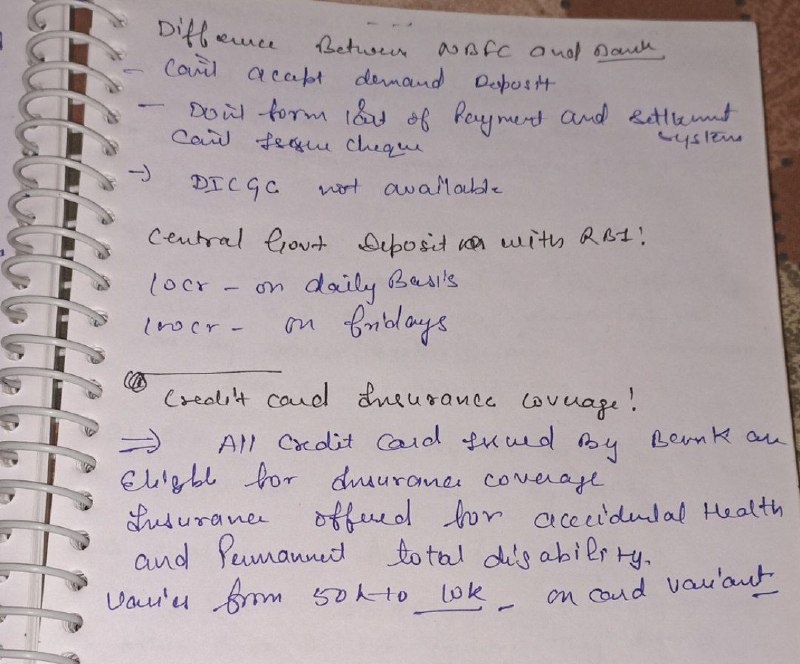 Difference Between NBFC and Bank
- Can't accept demand Deposit
- Don't form Part of Payment and Settlement
System
Can't Issue cheque
→ DICGC not available
Central Govt Deposit with RBI!
10cr - on daily Basis
100cr - on fridays
Credit card Insurance coverage!
⇒ All Credit Card Issued By Bank are
Eligible for Insurance coverage
Insurance offered for accidental Health
and Permannet total disability.
Varies from 50k to 10k - on card variant